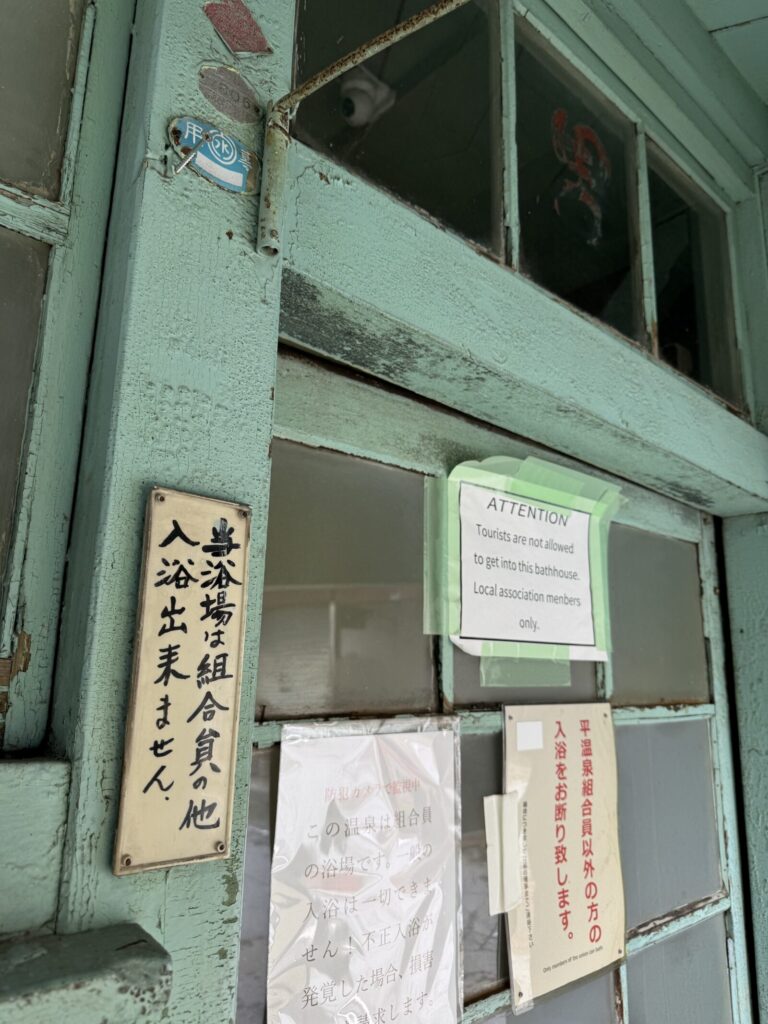 当浴場は組合員の他
入浴出来ません.
ATTENTION
Tourists are not allowed
to get into this bathhouse.
Local association menbers
only.
防犯カメラで監視中
この温泉は組合員
の浴場です。一般の
入浴は一切できま
せん！不正入浴が
発覚した場合、損害
請求します。
平温泉組合員以外の方の
入浴をお断り致します。
Only members of the union can bath.
男
水